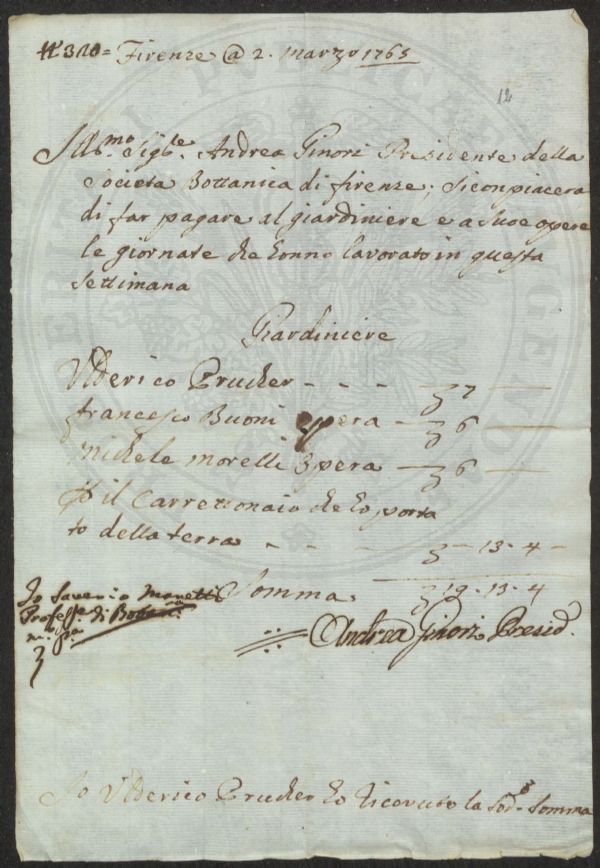 № 310 = Firenze @ 2. Marzo 1765
12
Ill.mo Sig.le Andrea Ginori Presidente della
Società Bottanica di firenze; si conpiacera
di far pagare al giardiniere e a suoe opere
le giornate che honno lavorato in questa
Settimana
Giardiniere
Ulderico Prucker - - - 7 —
francesco Buoni opera — 6 —
Michele Morelli Opera — 6 —
il Carrettonaio che ho porta
to della terra - - — 13 - 4 —
Somma 19 - 13 - 4
Io Saverio Manetti
Profess.e di Botan.a
m.o p.a
Andrea Ginori Presid.e
Io Ulderico Prucker ho ricevuto la Sod.a Somma